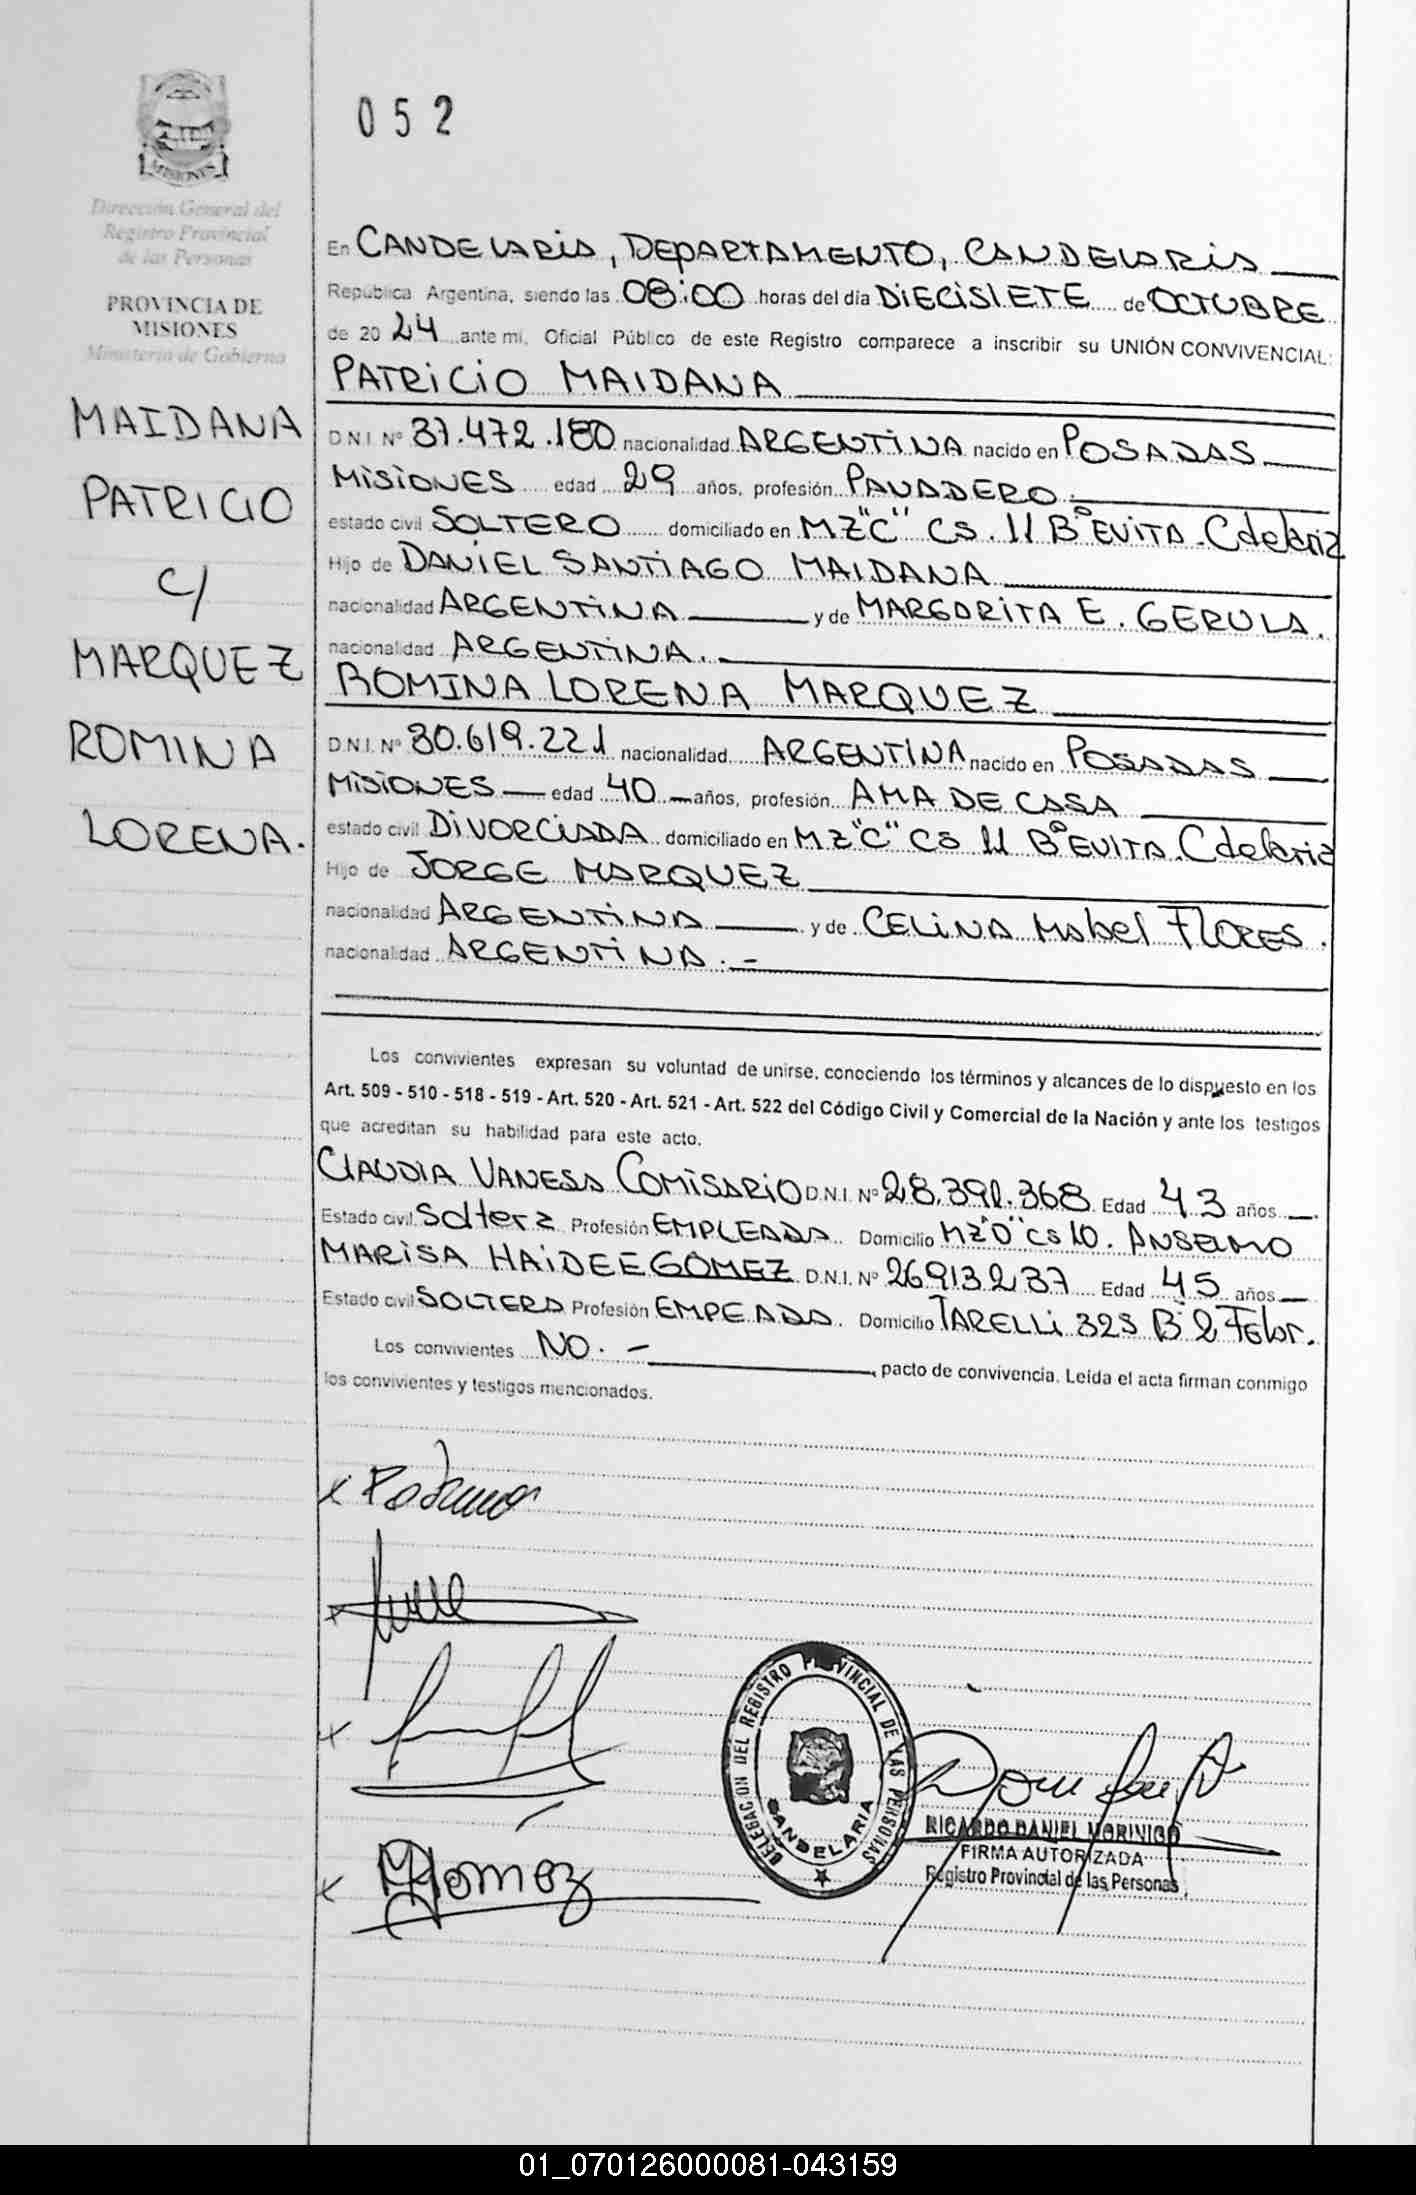 052
MISIONES
Dirección General del
Registro Provincial
de las Personas
PROVINCIA DE
MISIONES
Ministerio de Gobierno
MAIDANA
PATRICIO
C/
MARQUEZ
ROMINA
LORENA.
En CANDELARIA, DEPARTAMENTO, CANDELARIA
República Argentina, siendo las 08:00 horas del día DIECISIETE de OCTUBRE
de 2024 ante mi, Oficial Público de este Registro comparece a inscribir su UNIÓN CONVIVENCIAL:
PATRICIO MAIDANA
D.N.I. Nº 37.472.180 nacionalidad ARGENTINA nacido en POSADAS
MISIONES edad 29 años, profesión PANADERO.
estado civil SOLTERO domiciliado en MZ"C" CS. 11 Bº EVITA. Cdelaria
Hijo de DANIEL SANTIAGO MAIDANA
nacionalidad ARGENTINA y de MARGARITA E. GERULA.
nacionalidad ARGENTINA.
ROMINA LORENA MARQUEZ
D.N.I. Nº 30.619.221 nacionalidad ARGENTINA nacido en POSADAS
MISIONES edad 40 años, profesión AMA DE CASA
estado civil DIVORCIADA domiciliado en MZ"C" CS 11 Bº EVITA. Cdelaria
Hijo de JORGE MARQUEZ
nacionalidad ARGENTINA y de CELINA Mabel FLORES.
nacionalidad ARGENTINA.-
Los convivientes expresan su voluntad de unirse, conociendo los términos y alcances de lo dispuesto en los
Art. 509 - 510 - 518 - 519 - Art. 520 - Art. 521 - Art. 522 del Código Civil y Comercial de la Nación y ante los testigos
que acreditan su habilidad para este acto.
CLAUDIA VANESA COMISARIO D.N.I. Nº 28.391.368 Edad 43 años
Estado civil Soltera Profesión EMPLEADA Domicilio MZ"D" CS 10. ANSELMO
MARISA HAIDEE GOMEZ D.N.I. Nº 26913237 Edad 45 años
Estado civil SOLTERA Profesión EMPEADA. Domicilio TARELLI 323 B 2
Los convivientes NO.- pacto de convivencia. Leída el acta firman conmigo
los convivientes y testigos mencionados.
x
x
x
x Gomez
DELEGACION DEL REGISTRO PROVINCIAL DE LAS PERSONAS
CANDELARIA
RICARDO DANIEL MORINIGO
FIRMA AUTORIZADA
Registro Provincial de las Personas
01_070126000081-043159